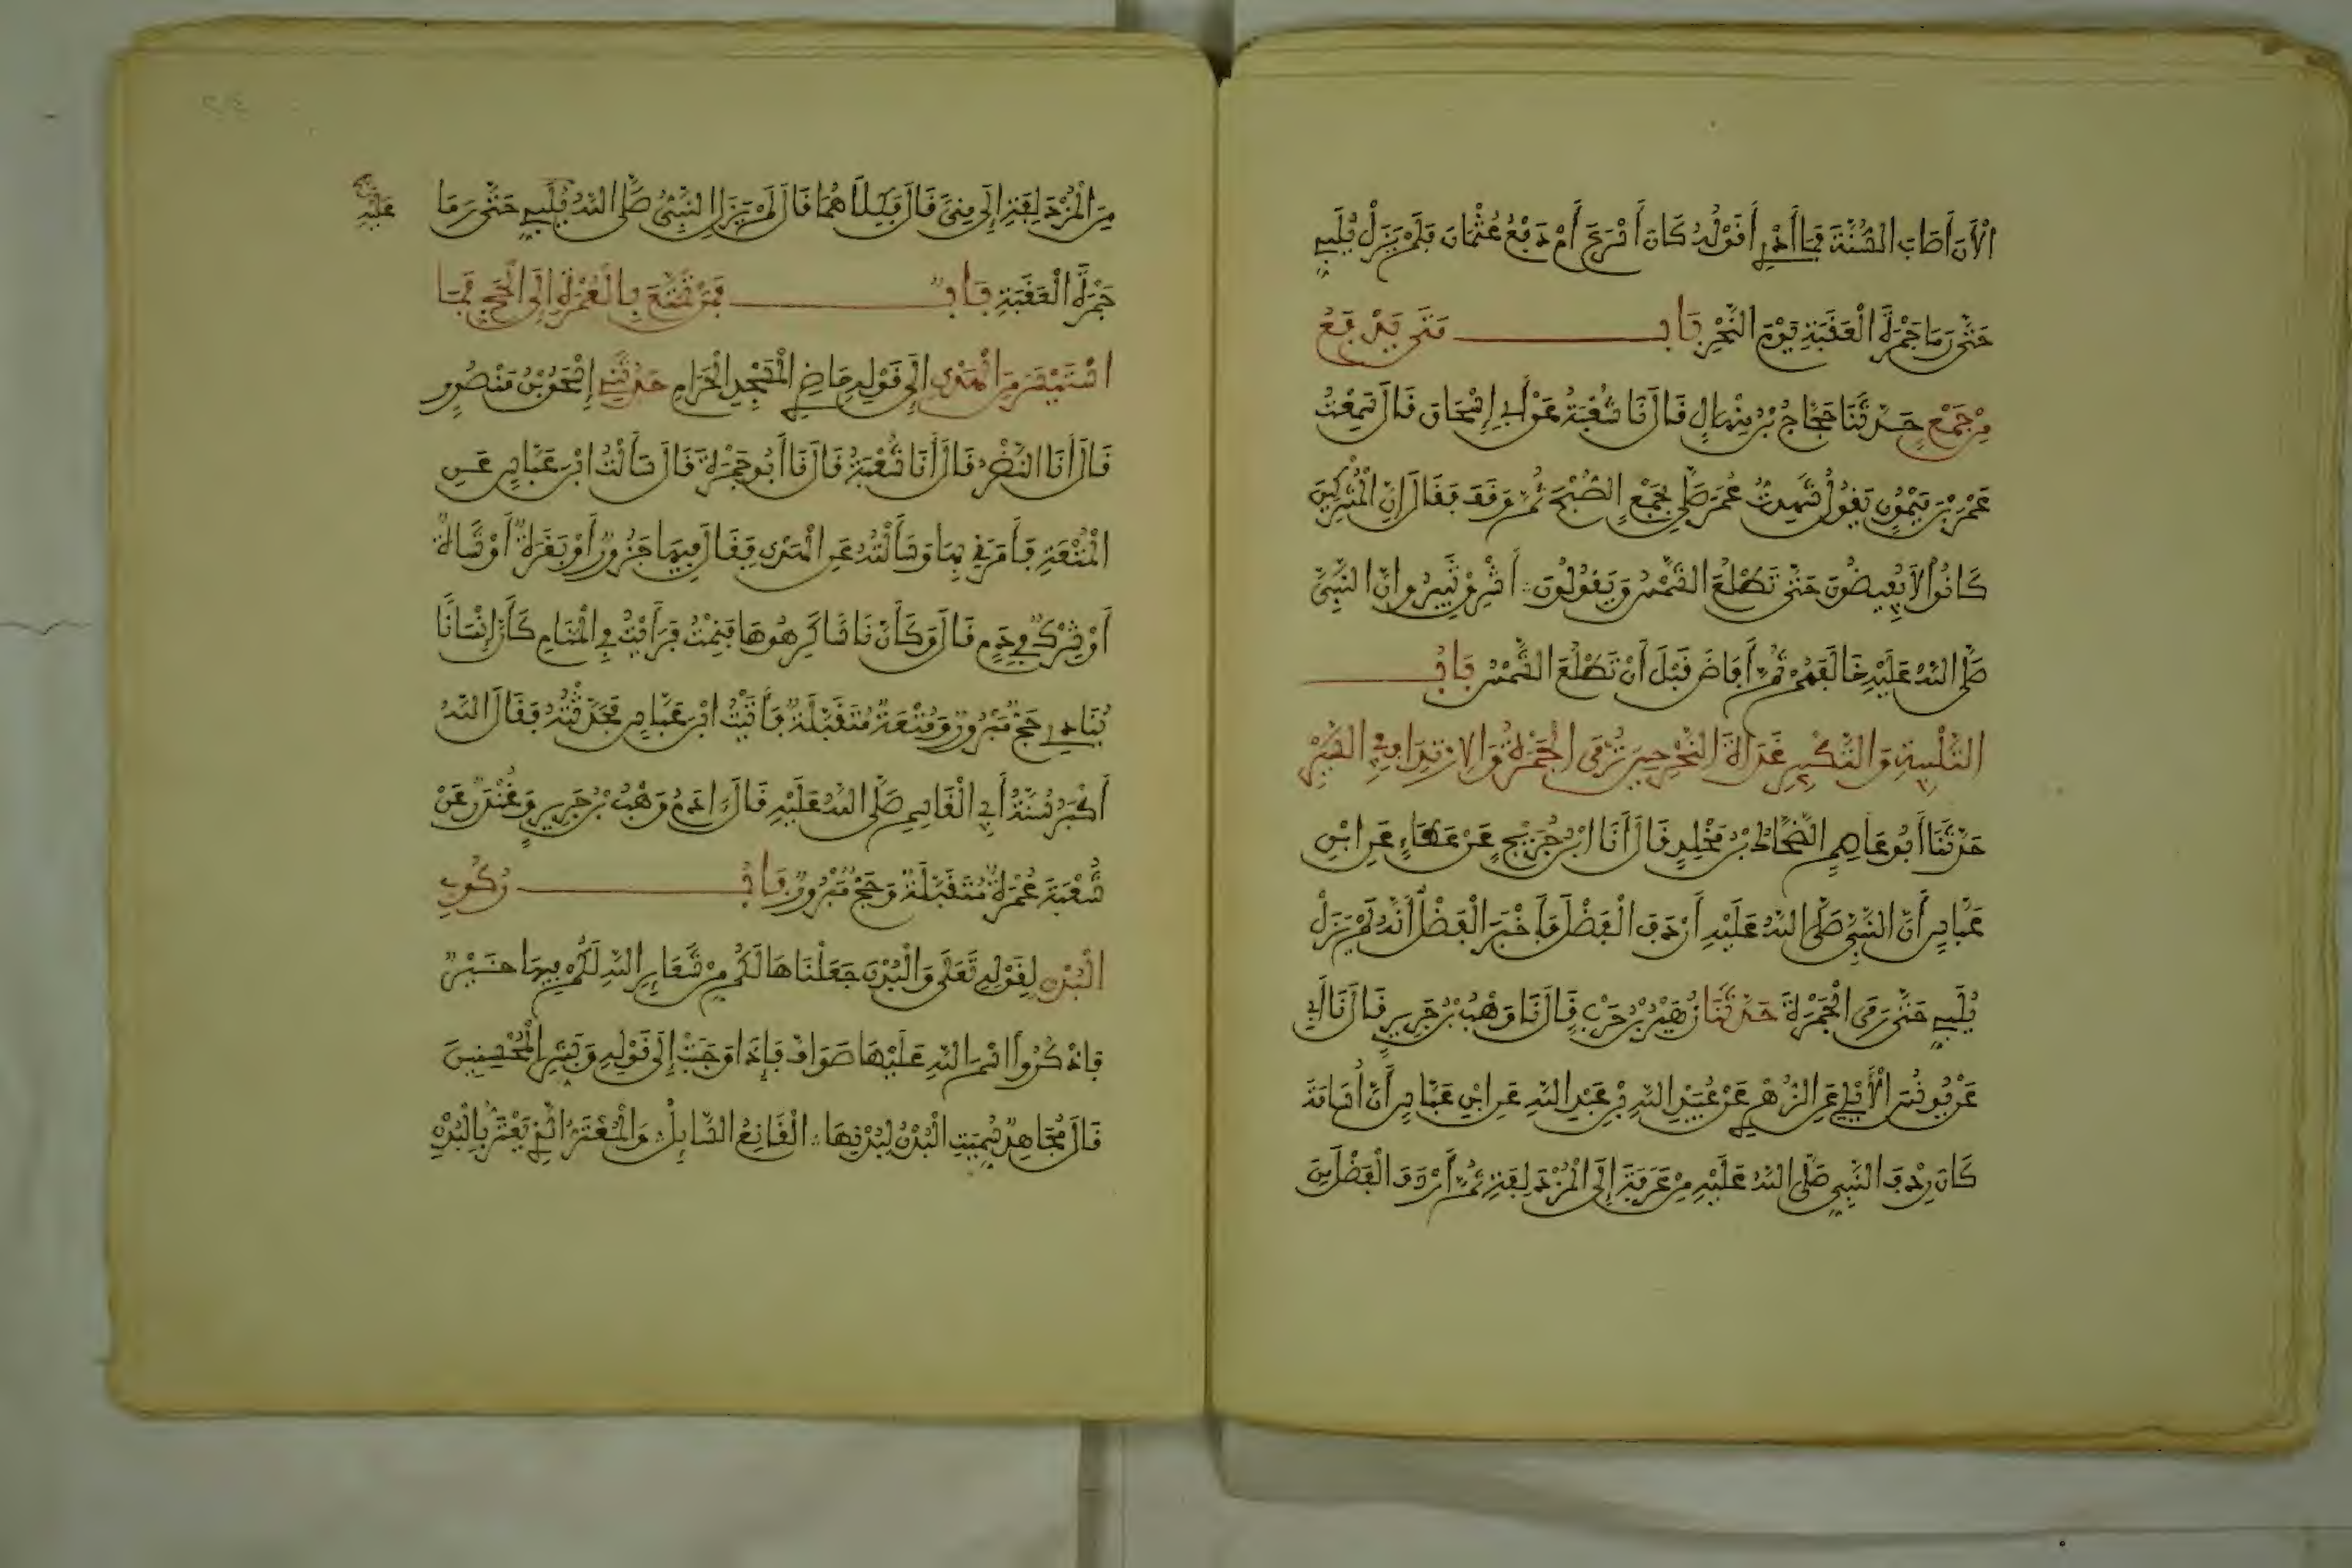 الْأَنَ أَصَابَ السُّنَّةَ فَمَا أَدْرِي أَقَوْلُهُ كَانَ أَسْرَعَ أَمْ دَفْعُ عُثْمَانَ فَلَمْ يَزَلْ يُلَبِّي
حَتَّى رَمَا جَمْرَةَ الْعَقَبَةِ يَوْمَ النَّحْرِ بَابٌ مَتَى يَدْفَعُ
مِنْ جَمْعٍ حَدَّثَنَا حَجَّاجُ بْنُ مِنْهَالٍ قَالَ نَا شُعْبَةُ عَنْ أَبِي إِسْحَاقَ قَالَ سَمِعْتُ
عَمْرَ بْنَ مَيْمُونٍ يَقُولُ شَهِدتُّ عُمَرَ صَلَّى بِجَمْعٍ الصُّبْحَ ثُمَّ وَقَفَ فَقَالَ إِنَّ الْمُشْرِكِينَ
كَانُوا لَا يُفِيضُونَ حَتَّى تَطْلُعَ الشَّمْسُ وَيَقُولُونَ أَشْرِقْ ثَبِيرُ وَإِنَّ النَّبِيَّ
صَلَّى اللَّهُ عَلَيْهِ خَالَفَهُمْ ثُمَّ أَفَاضَ قَبْلَ أَنْ تَطْلُعَ الشَّمْسُ بَابُ
التَّلْبِيَةِ وَالتَّكْبِيرِ غَدَاةَ النَّحْرِ حِينَ تُرْمَى الْجَمْرَةُ وَالِارْتِدَافِ فِي السَّيْرِ
حَدَّثَنَا أَبُو عَاصِمٍ الضَّحَّاكُ بْنُ مَخْلَدٍ قَالَ أَنَا ابْنُ جُرَيْجٍ عَنْ عَطَاءٍ عَنِ ابْنِ
عَبَّاسٍ أَنَّ النَّبِيَّ صَلَّى اللَّهُ عَلَيْهِ أَرْدَفَ الْفَضْلَ فَأَخْبَرَ الْفَضْلُ أَنَّهُ لَمْ يَزَلْ
يُلَبِّي حَتَّى رَمَى الْجَمْرَةَ حَدَّثَنَا زُهَيْرُ بْنُ حَرْبٍ قَالَ نَا وَهْبُ بْنُ جَرِيرٍ قَالَ نَا أَبِي
عَنْ يُونُسَ الْأَيْلِيِّ عَنِ الزُّهْرِيِّ عَنْ عُبَيْدِ اللَّهِ بْنِ عَبْدِ اللَّهِ عَنِ ابْنِ عَبَّاسٍ أَنَّ أُسَامَةَ
كَانَ رِدْفَ النَّبِيِّ صَلَّى اللَّهُ عَلَيْهِ مِنْ عَرَفَةَ إِلَى الْمُزْدَلِفَةِ ثُمَّ أَرْدَفَ الْفَضْلَ مِنَ
مِنَ الْمُزْدَلِفَةِ إِلَى مِنًى قَالَ فَكِلَاهُمَا قَالَ لَمْ يَزَلِ النَّبِيُّ صَلَّى اللَّهُ يُلَبِّي حَتَّى رَمَا
عَلَيْهِ
جَمْرَةَ الْعَقَبَةِ بَابٌ فَمَنْ تَمَتَّعَ بِالْعُمْرَةِ إِلَى الْحَجِّ فَمَا
اسْتَيْسَرَ مِنَ الْهَدْيِ إِلَى قَوْلِهِ حَاضِرِي الْمَسْجِدِ الْحَرَامِ حَدَّثَنِي إِسْحَقُ بْنُ مَنْصُورٍ
قَالَ أَنَا النَّضْرُ قَالَ أَنَا شُعْبَةُ قَالَ نَا أَبُو جَمْرَةَ قَالَ سَأَلْتُ ابْنَ عَبَّاسٍ عَنِ
الْمُتْعَةِ فَأَمَرَنِي بِهَا وَسَأَلْتُهُ عَنِ الْهَدْيِ فَقَالَ فِيهَا جَزُورٌ أَوْ بَقَرَةٌ أَوْ شَاةٌ
أَوْ شِرْكٌ فِي دَمٍ قَالَ وَكَأَنَّ نَاسًا كَرِهُوهَا فَنِمْتُ فَرَأَيْتُ فِي الْمَنَامِ كَأَنَّ إِنْسَانًا
يُنَادِي حَجٌّ مَبْرُورٌ وَمُتْعَةٌ مُتَقَبَّلَةٌ فَأَتَيْتُ ابْنَ عَبَّاسٍ فَحَدَّثْتُهُ فَقَالَ اللَّهُ
أَكْبَرُ سُنَّةُ أَبِي الْقَاسِمِ صَلَّى اللَّهُ عَلَيْهِ قَالَ ءَادَمُ وَهْبُ بْنُ جَرِيرٍ وَغُنْدَرٌ عَنْ
شُعْبَةَ عُمْرَةٌ مُتَقَبَّلَةٌ وَحَجٌّ مَبْرُورٌ بَابُ رُكُوبِ
الْبُدْنِ لِقَوْلِهِ تَعَلَى وَالْبُدْنَ جَعَلْنَاهَا لَكُم مِنْ شَعَائِرِ اللَّهِ لَكُمْ فِيهَا خَيْرٌ
فَاذْكُرُوا اسْمَ اللَّهِ عَلَيْهَا صَوَافَّ فَإِذَا وَجَبَتْ إِلَى قَوْلِهِ وَبَشِّرِ الْمُحْسِنِينَ
قَالَ مُجَاهِدٌ سُمِّيَتِ الْبُدْنُ لِبُدْنِهَا الْقَانِعُ السَّائِلُ وَالْمُعْتَرُّ الَّذِي يَعْتَرُّ بِالْبُدْنِ